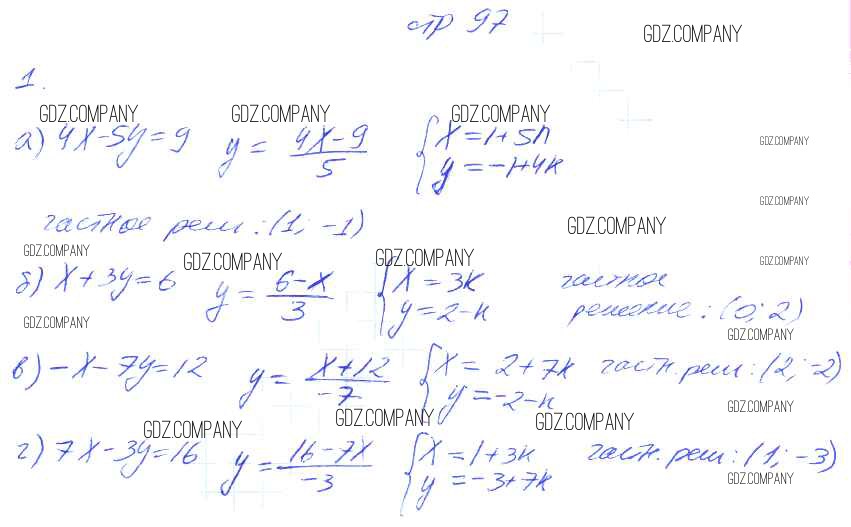 стр 97
GDZ.COMPANY
1.
GDZ.COMPANY GDZ.COMPANY GDZ.COMPANY
а) 4x-5y=9 y = (4x-9)/5 { x=1+5n y=-1+4k
GDZ.COMPANY
GDZ.COMPANY
частное реш: (1; -1) GDZ.COMPANY
GDZ.COMPANY GDZ.COMPANY GDZ.COMPANY GDZ.COMPANY
б) x+3y=6 y = (6-x)/3 { x=3k y=2-k частное решение: (0; 2)
GDZ.COMPANY GDZ.COMPANY
в) -x-7y=12 y = (x+12)/-7 { x=2+7k y=-2-k частн. реш: (2; -2)
GDZ.COMPANY GDZ.COMPANY GDZ.COMPANY GDZ.COMPANY
г) 7x-3y=16 y = (16-7x)/-3 { x=1+3k y=-3+7k частн. реш: (1; -3)
GDZ.COMPANY